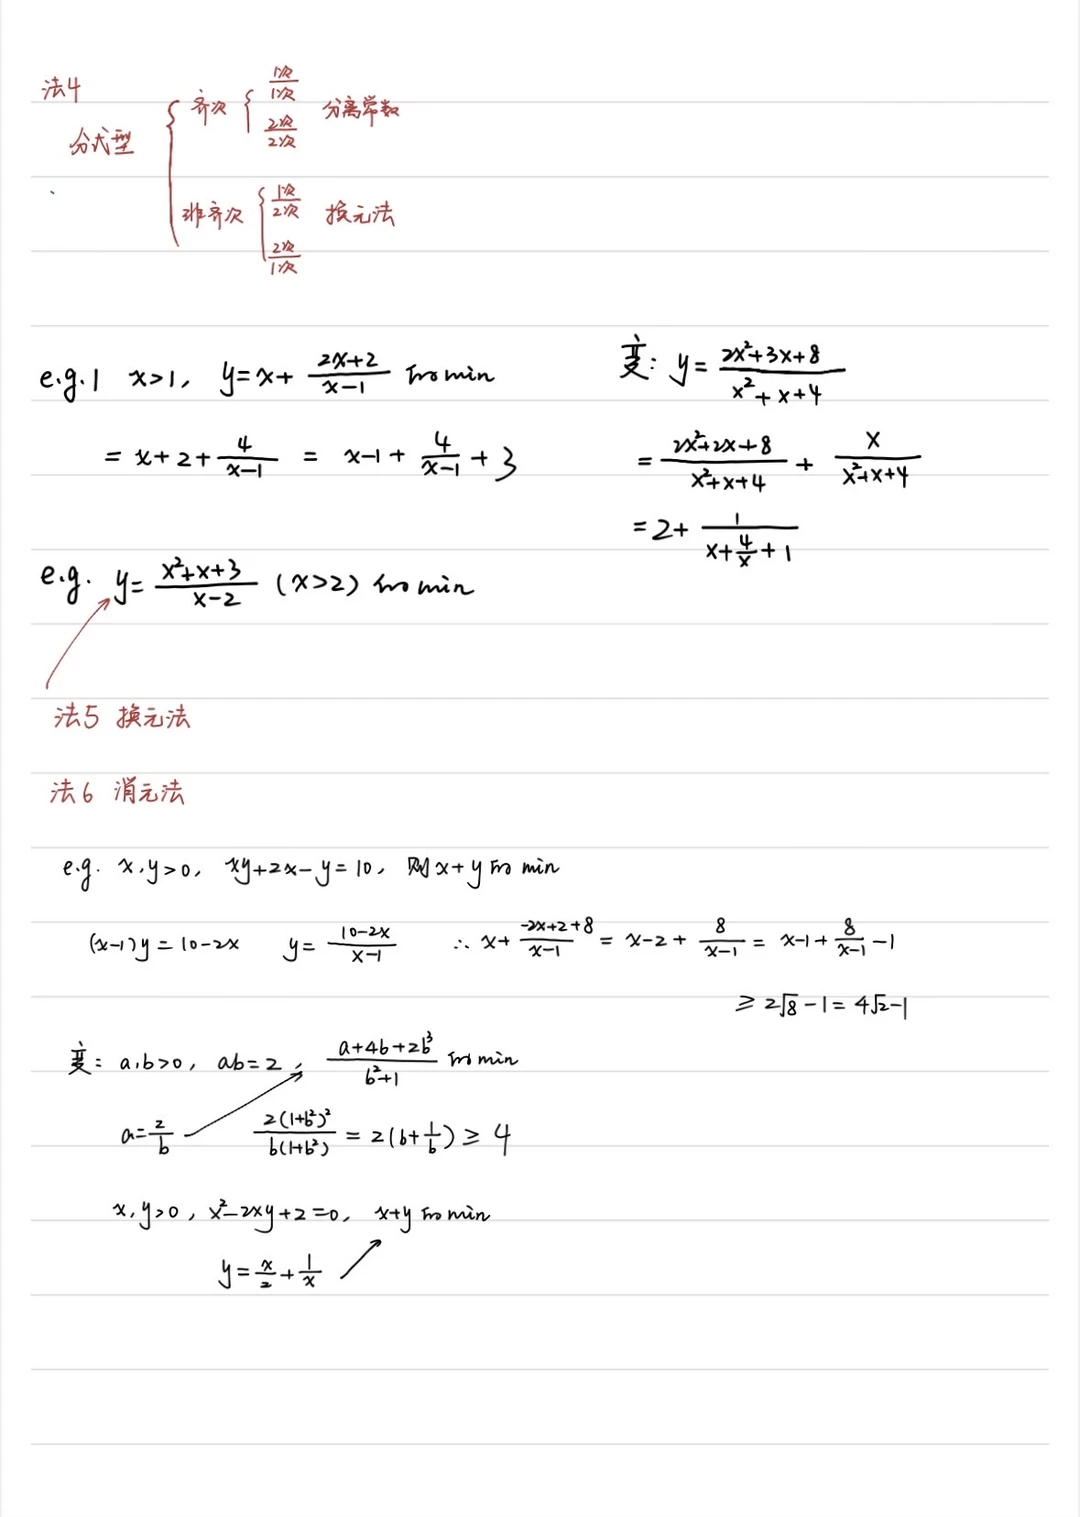 法4
分式型 { 齐次 { 1次/1次 2次/2次 分离常数
非齐次 { 1次/2次 2次/1次 换元法
e.g.1 x>1, y=x+(2x+2)/(x-1) 的min
= x+2+4/(x-1) = x-1+4/(x-1)+3
变: y=(2x²+3x+8)/(x²+x+4)
=(2x²+2x+8)/(x²+x+4) + x/(x²+x+4)
=2+1/(x+4/x+1)
e.g. y=(x²+x+3)/(x-2) (x>2) 的min
法5 换元法
法6 消元法
e.g. x,y>0, xy+2x-y=10, 则x+y的min
(x-1)y=10-2x y=(10-2x)/(x-1) ∴ x+(-2x+2+8)/(x-1) = x-2+8/(x-1) = x-1+8/(x-1)-1
≥2√8-1=4√2-1
变: a,b>0, ab=2, (a+4b+2b³)/(b²+1) 的min
a=2/b 2(1+b²)²/b(1+b²) = 2(b+1/b) ≥ 4
x,y>0, x²-2xy+2=0, x+y的min
y=x/2+1/x